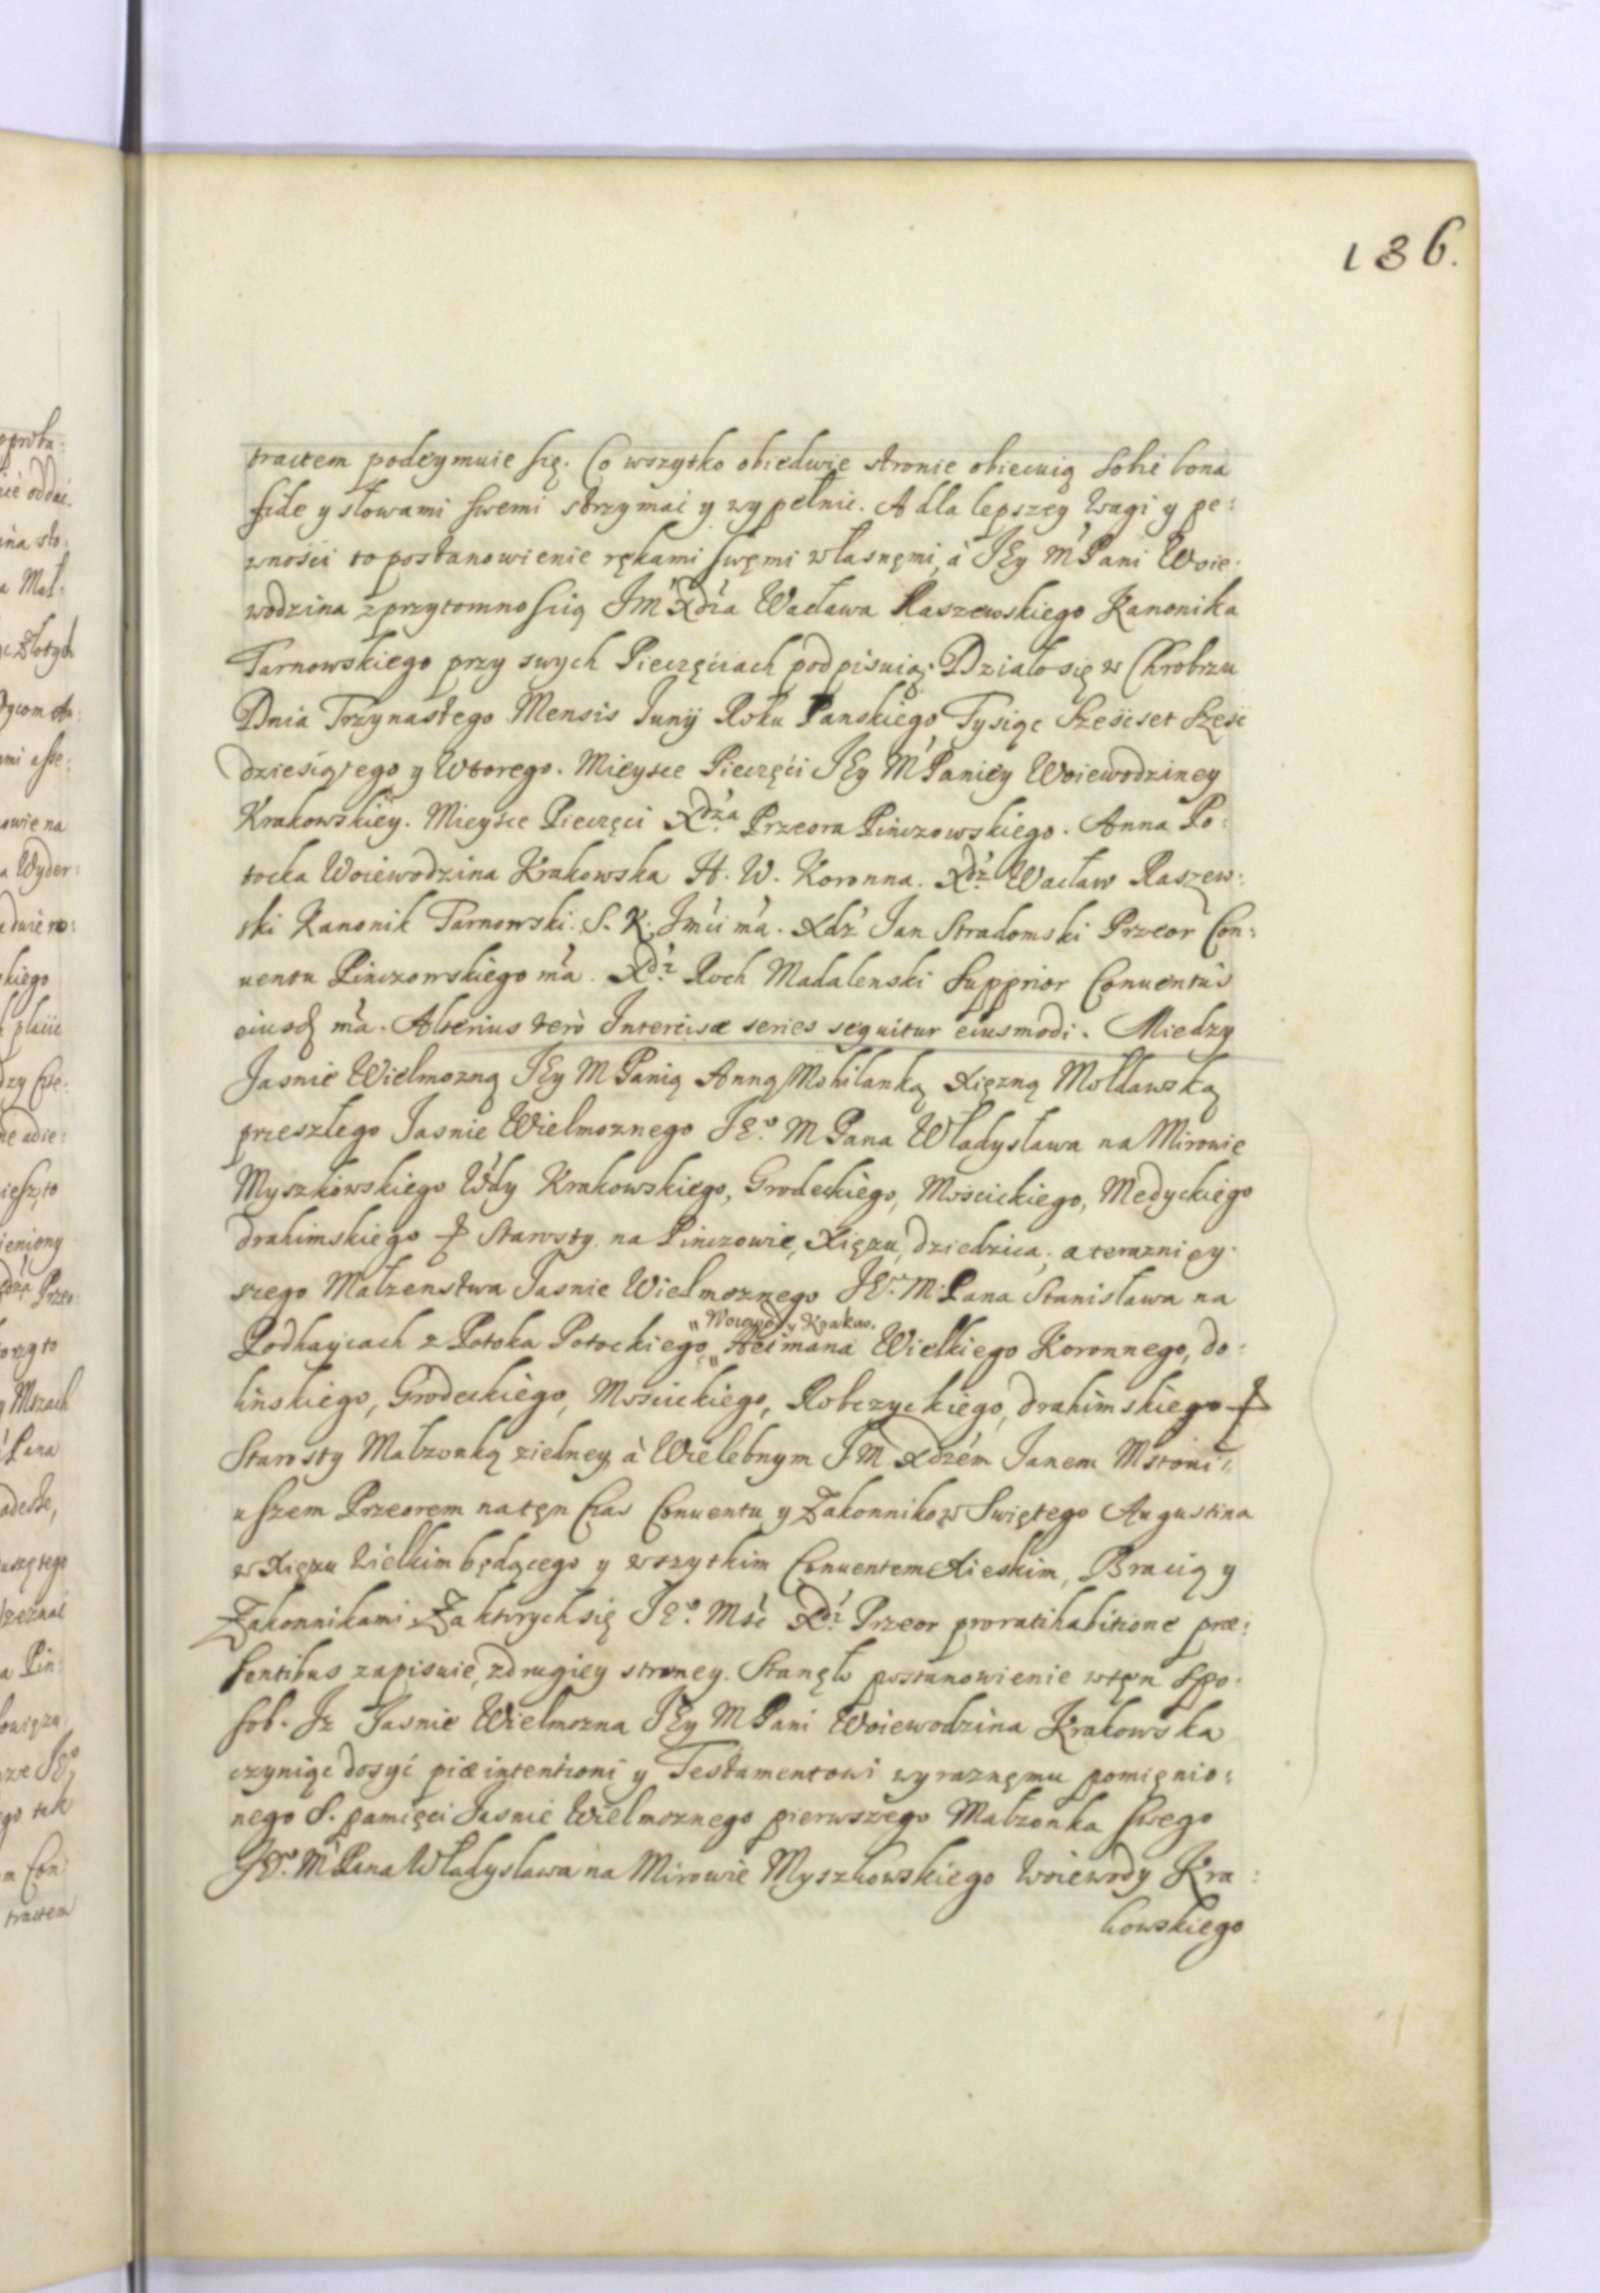 136.
tractem podeymuie się. Co wszytko obiedwie stronie obiecuią sobie bona
fide y słowami swemi strzymać y wypełnic. A dla lepszey wagi y pe:
wności to postanowienie rękami swęmi własnęmi, à JEy M Pani Woie:
wodzina z przytomnością JM Xdza Wacława Raszewskiego Kanonika
Tarnowskiego przy swych Pieczęciach podpisuią. Działo się w Chrobrzu
Dnia Trzynastego Mensis Junij Roku Panskiego Tysiąc Szescset Szesc
dziesiątego y Wtorego. Mieysce Pieczęci JEy M Paniey Woiewodziney
Krakowskiey. Mieysce Pieczęci Xdza Przeora Pinczowskiego. Anna Po:
tocka Woiewodzina Krakowska H. W. Koronna. Xdz Wacław Raszew:
ski Kanonik Tarnowski. S. K. Jmci ma. Xdz Jan Stradomski Przeor Con:
uentu Pinczowskiego ma. Xdz Roch Madalenski Supprior Conuentus
eiusd ma. Alterius verò Intercisæ series sequitur eiusmodi. Miedzy
Jasnie Wielmozną JEy M Panią Anną Mohilanką Xięzną Mołdawską
przeszłego Jasnie Wielmoznego JE⁰ M Pana Władysława na Mirowie
Myszkowskiego Wdy Krakowskiego, Grodeckiego, Mościckiego, Medyckiego
drahimskiego & Starosty na Pinczowie, Xięzu, dziedzica, a teraznięy
szego Małzenstwa Jasnie Wielmoznego JE⁰ M Pana Stanisława na
"Woiewody Krakow.
Podhaycach z Potoka Potockiego " Hetmana Wielkiego Koronnego, do:
linskiego, Grodeckiego, Mościckiego, Robczyckiego, drahimskiego &
Starosty Małzonką ziedney, à Wielebnym JM Xdzem Janem
uszem Przeorem na tęn Czas Conuentu y Zakonnikow Swiętego Augustina
w Xięzu Wielkim będącego y wszytkim Conuentem Xieskim, Bracią y
Zakonnikami Za ktorych się JE⁰ Mść Xdz Przeor proratihabitione præ:
sentibus zapisuie, zdrugiey stroney. Stanęło postanowienie wtęn spo:
sob. Jz Jasnie Wielmozna JEy M Pani Woiewodzina Krakowska
czyniąc dosyć piæ intentioni y Testamentowi wyraznęmu pomięnio:
nego S. pamięci Jasnie Wielmoznego pierwszego Małzonka swego
JE⁰ M Pana Władysława na Mirowie Myszkowskiego Woiewody Kra:
kowskiego